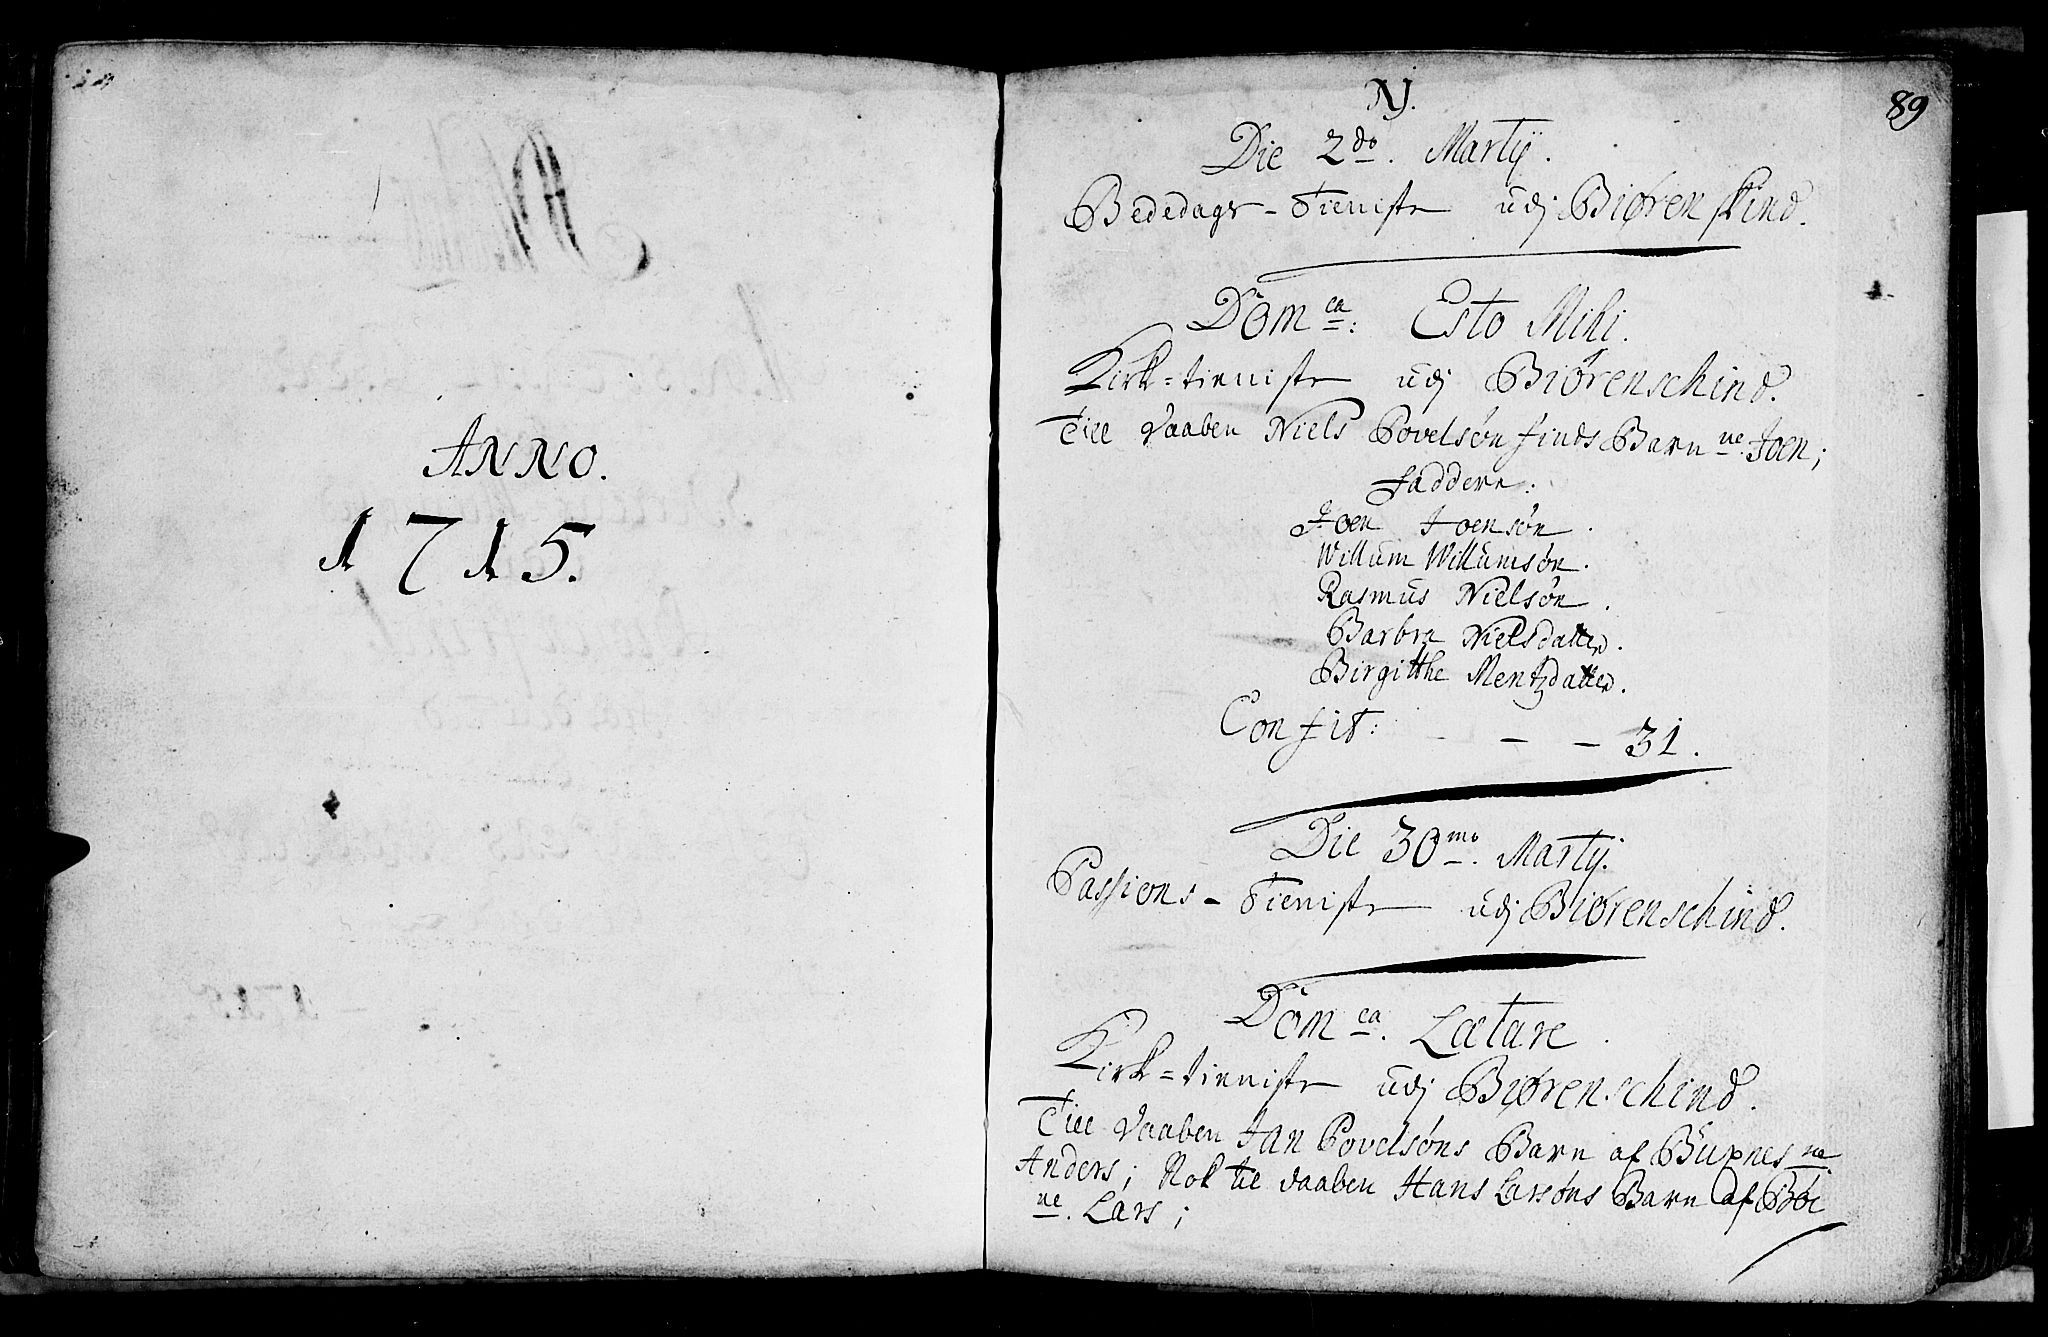 ANNO.
1715.
89
NJ.
Die 2do. Martij.
Bededags-Tieniste udj Biørenskind.
Domca: Esto Mihi.
Kirk=tieniste udj Biørenschind.
Till daaben Niels Povelsøn finds Barn ne. Joen;
faddere:
Joen Joensøn.
Willum Willumsøn.
Rasmus Nielsøn.
Barbra Nielsdatter.
Birgitthe Mentzdatter.
Confit: - - - 31.
Die 30mo. Martij.
Passions-Tieniste udj Biørenschind.
Domca. Lætare.
Kirk=tieniste udj Biørenschind.
Till daaben Jan Povelsøns Barn af Buxnes ne
Anders; Nok til daaben Hans Larsøns Barn af Bøe
ne. Lars;